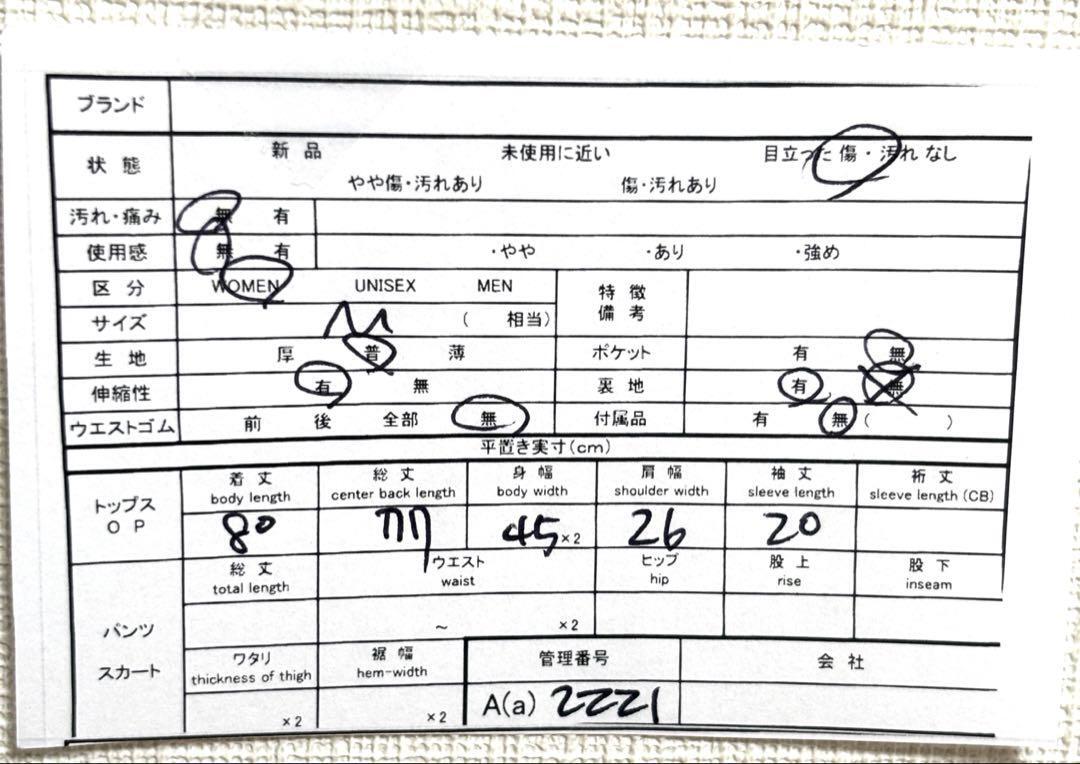 ブランド
状態 新品 未使用に近い 目立った傷・汚れなし
やや傷・汚れあり 傷・汚れあり
汚れ・痛み 無 有
使用感 無 有 ・やや ・あり ・強め
区分 WOMEN UNISEX MEN 特徴備考
サイズ M ( 相当)
生地 厚 普 薄 ポケット 有 無
伸縮性 有 無 裏地 有 無
ウエストゴム 前 後 全部 無 付属品 有 無 ( )
平置き実寸(cm)
トップス OP 着丈 総丈 身幅 肩幅 袖丈 裄丈
body length center back length body width shoulder width sleeve length sleeve length (CB)
80 77 45×2 26 20
パンツ スカート 総丈 ウエスト ヒップ 股上 股下
total length waist hip rise inseam
~ ×2
ワタリ 裾幅 管理番号 会社
thickness of thigh hem-width
×2 ×2 A(a) 2221